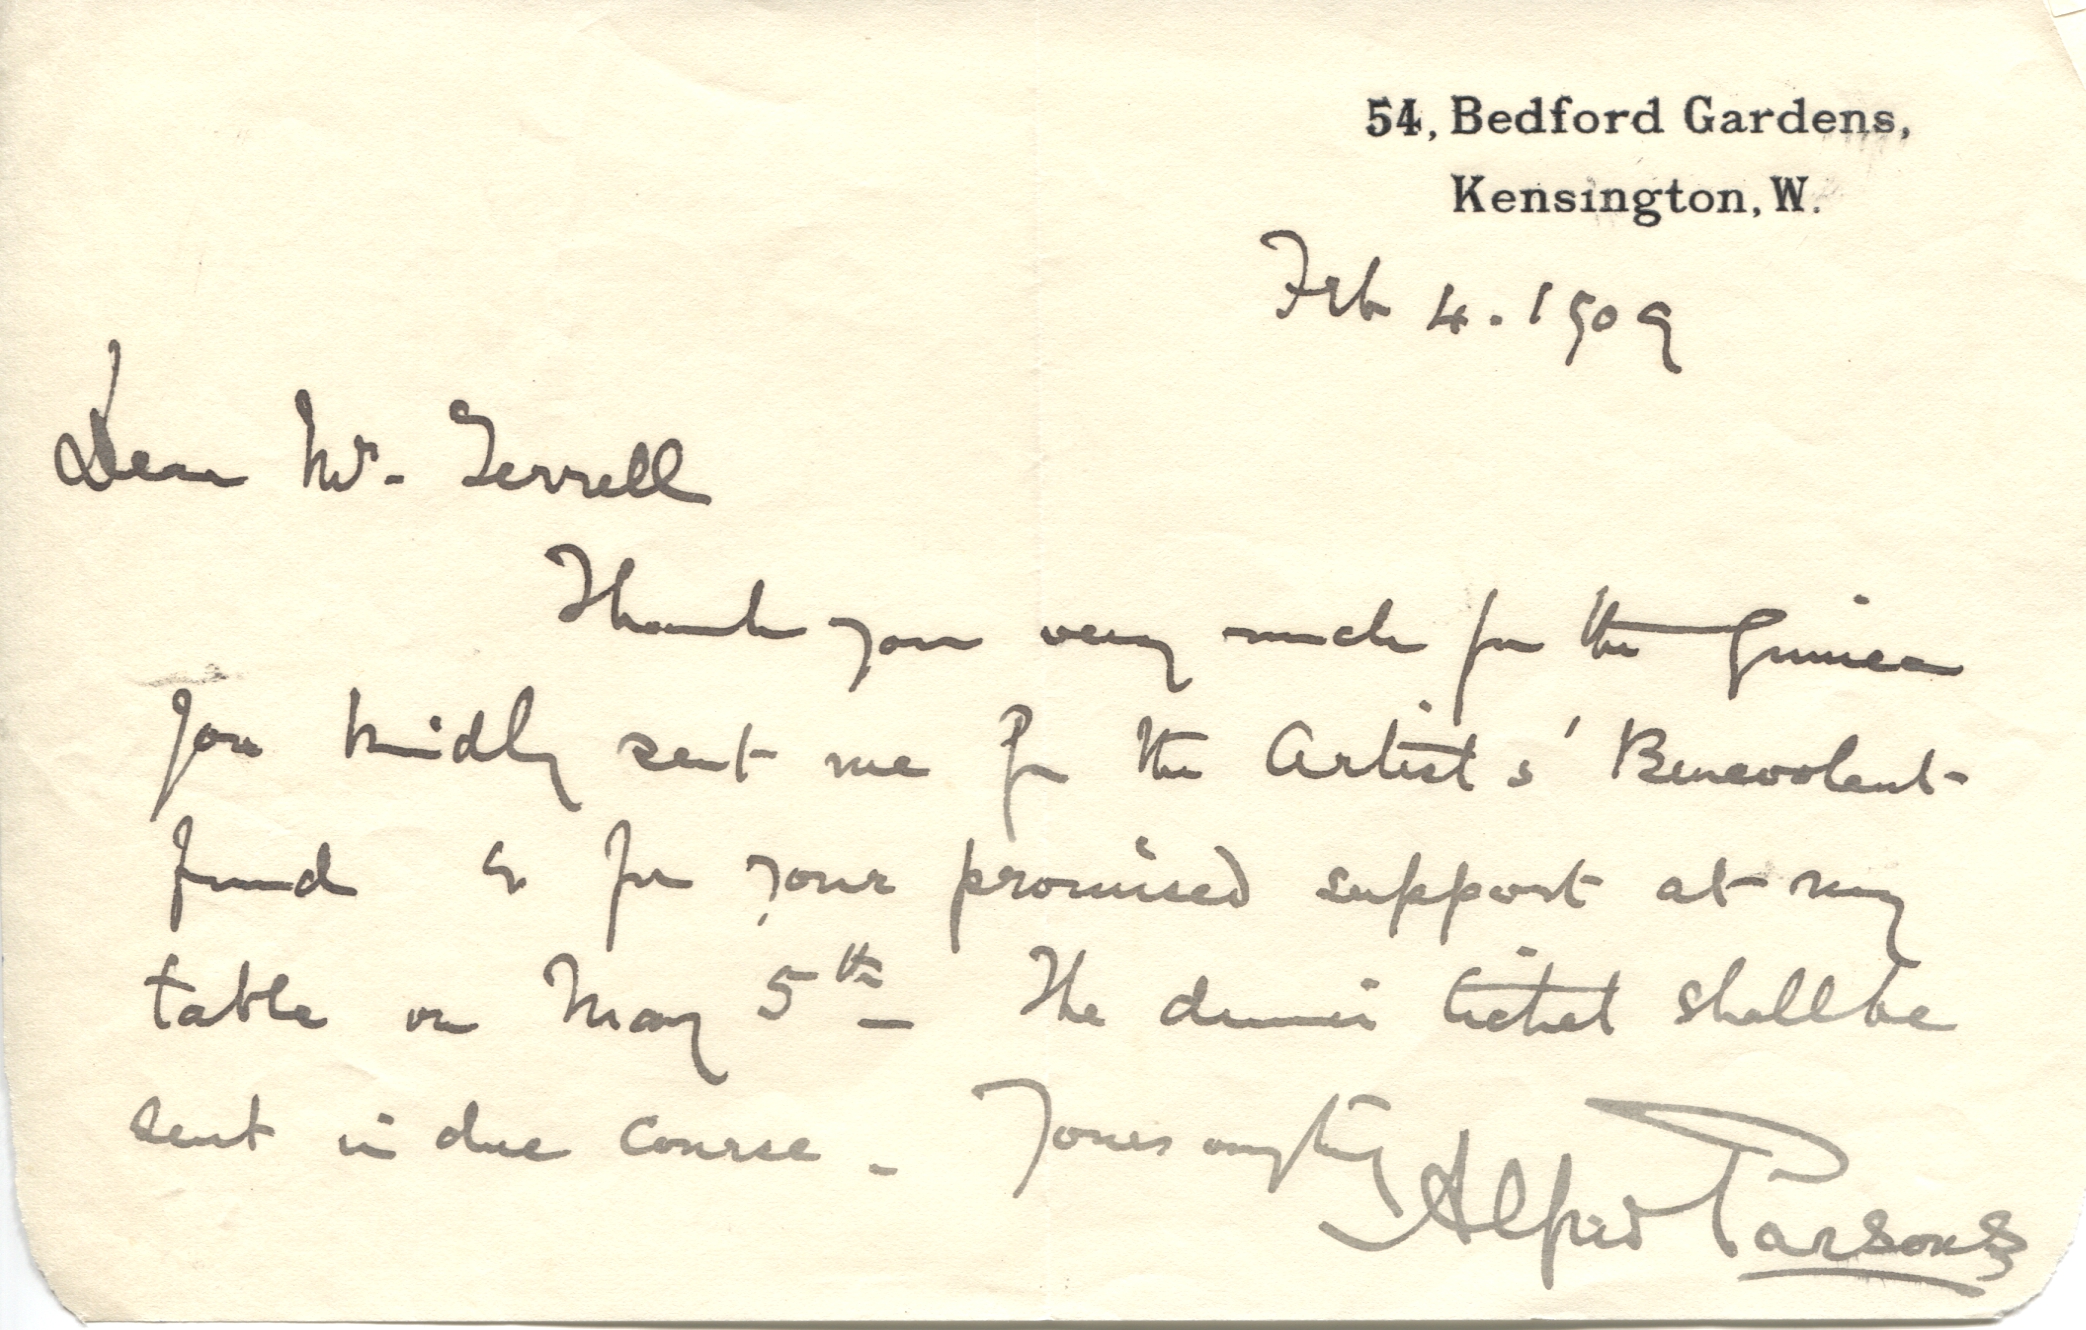 54, Bedford Gardens,
Kensington, W.
Feb 4. 1909
Dear Mr. Terrell
Thank you very much for the guinea
you kindly sent me for the Artists' Benevolent
fund & for your promised support at my
table on May 5th – The dinner ticket shall be
sent in due course – Yours
Alfred Parsons